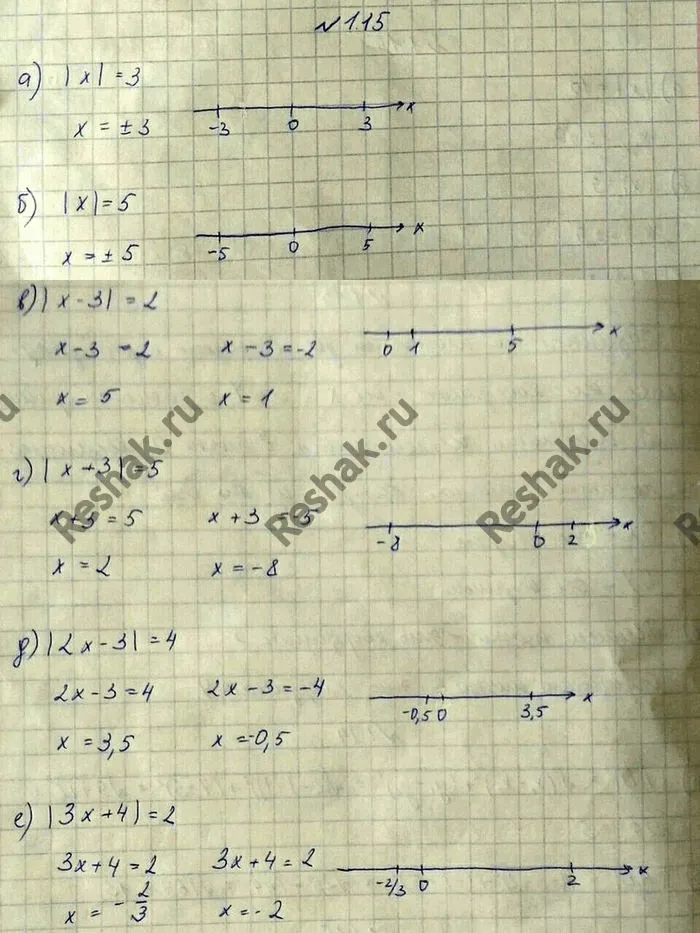 № 1.15
а) |x| = 3
x = ± 3
-3 0 3 x
б) |x| = 5
x = ± 5
-5 0 5 x
в) |x - 3| = 2
x - 3 = 2 x - 3 = -2
x = 5 x = 1
0 1 5 x
г) |x + 3| = 5
x + 3 = 5 x + 3 = -5
x = 2 x = -8
-8 0 2 x
д) |2x - 3| = 4
2x - 3 = 4 2x - 3 = -4
x = 3,5 x = -0,5
-0,5 0 3,5 x
е) |3x + 4| = 2
3x + 4 = 2 3x + 4 = 2
x = - 2/3 x = - 2
-2/3 0 2 x
Reshak.ru
Reshak.ru
Reshak.ru